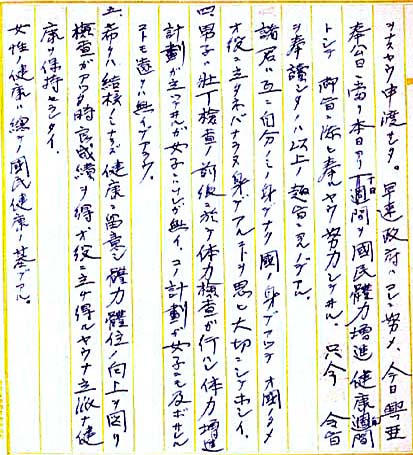 ツトメヤウ申渡セリ。早速政府ハコレニ努メ、今日興亜
奉公日ニ當リ本日ヨリ一週間ヲ國民體力増進健康週間
トシテ御旨ニ添ヒ奉ルヤウ努力シテオル。只今 令旨
ヲ奉讀シタノハ以上ノ趣旨ニヨルノデアル。
諸君ハ互ニ自分ノミノ身デナク國ノ身デアツテオ國ノタメ
オ役ニ立タネバナラヌ身デアルコトヲ思ヒ大切ニシテホシイ。
四、男子ニ壮丁検査ノ前後ニ於テ体力検査ガ行ハレ体力増進
計劃ガ立ツテオルガ女子ニハソレガ無イ、コノ計劃ガ女子ニモ及ボサレル
コトモ遠クハ無イデアラウ。
五、希クハ結核ニナラズ健康ニ留意シ體力體位ノ向上ヲ図リ
検査ガアツタ時良成績ヲ得オ役ニ立チ得ルヤウナ立派ナ健
康ヲ保持セラレタイ。
女性ノ健康ハ總テ國民健康ノ基デアル。